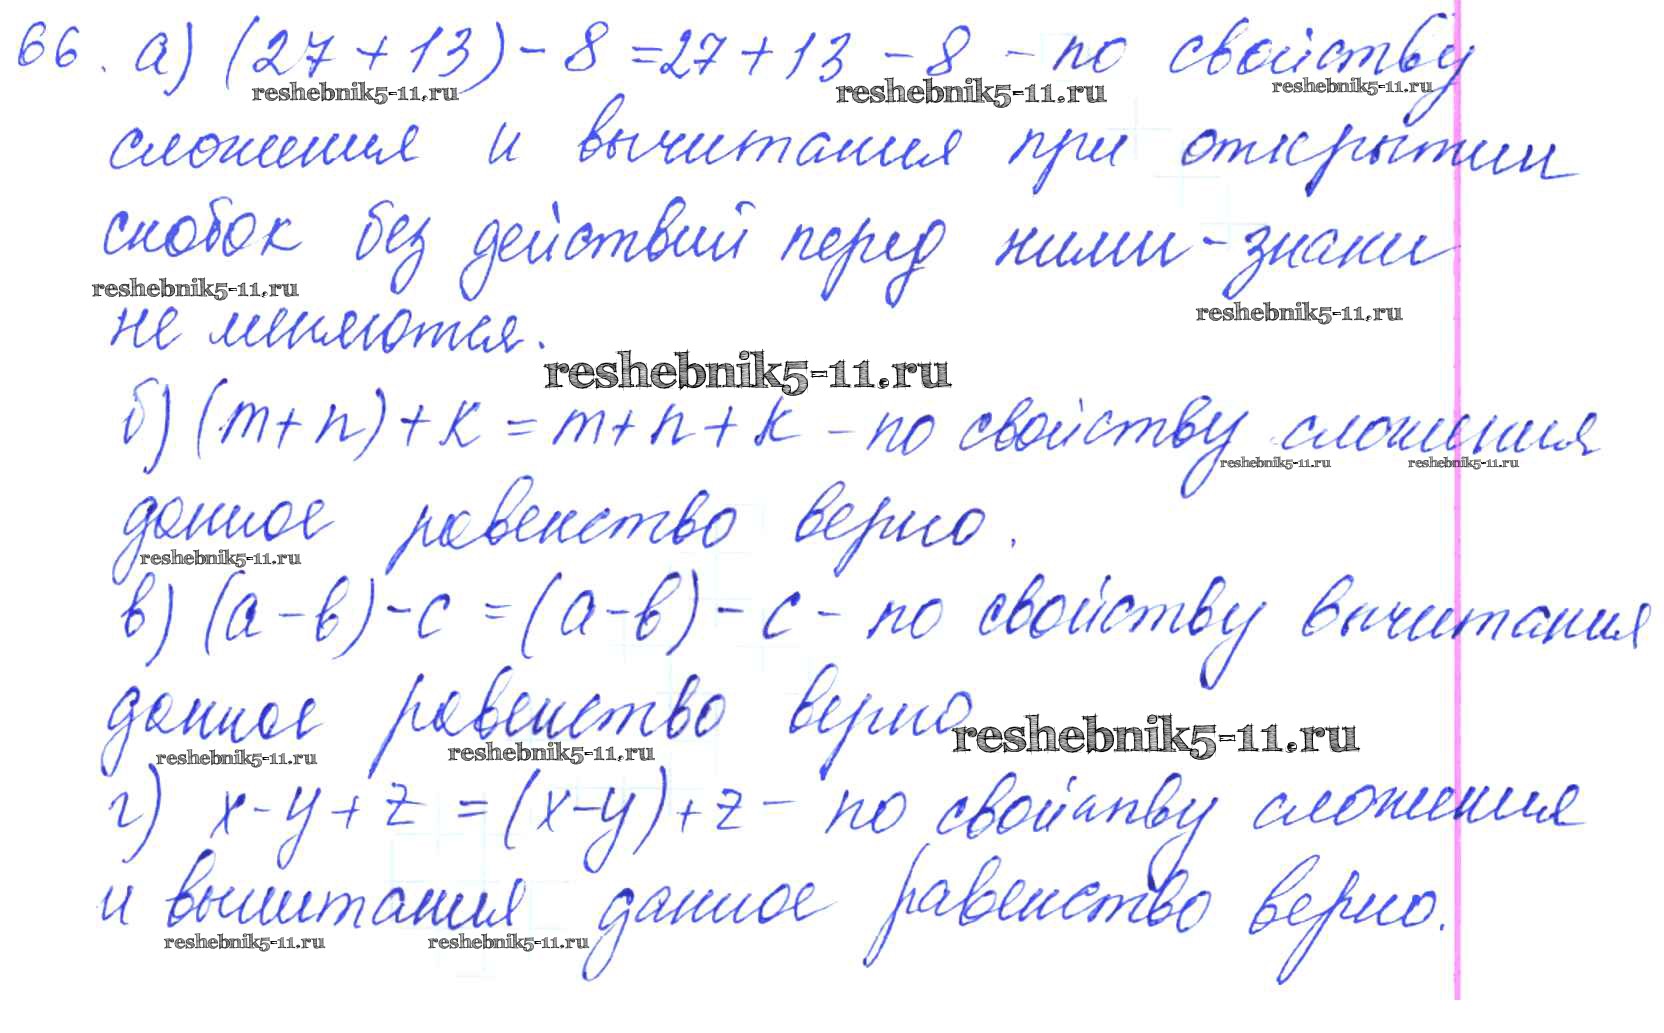 66. а) (27 + 13) - 8 = 27 + 13 - 8 - по свойству
reshebnik5-11.ru reshebnik5-11.ru reshebnik5-11.ru
сложения и вычитания при открытии
скобок без действий перед ними - знаки
reshebnik5-11.ru reshebnik5-11.ru
не меняются.
reshebnik5-11.ru
б) (m + n) + k = m + n + k - по свойству сложения
reshebnik5-11.ru reshebnik5-11.ru
данное равенство верно.
reshebnik5-11.ru
в) (a - в) - c = (a - в) - c - по свойству вычитания
данное равенство верно
reshebnik5-11.ru
reshebnik5-11.ru reshebnik5-11.ru
г) x - y + z = (x - y) + z - по свойству сложения
и вычитания данное равенство верно.
reshebnik5-11.ru reshebnik5-11.ru